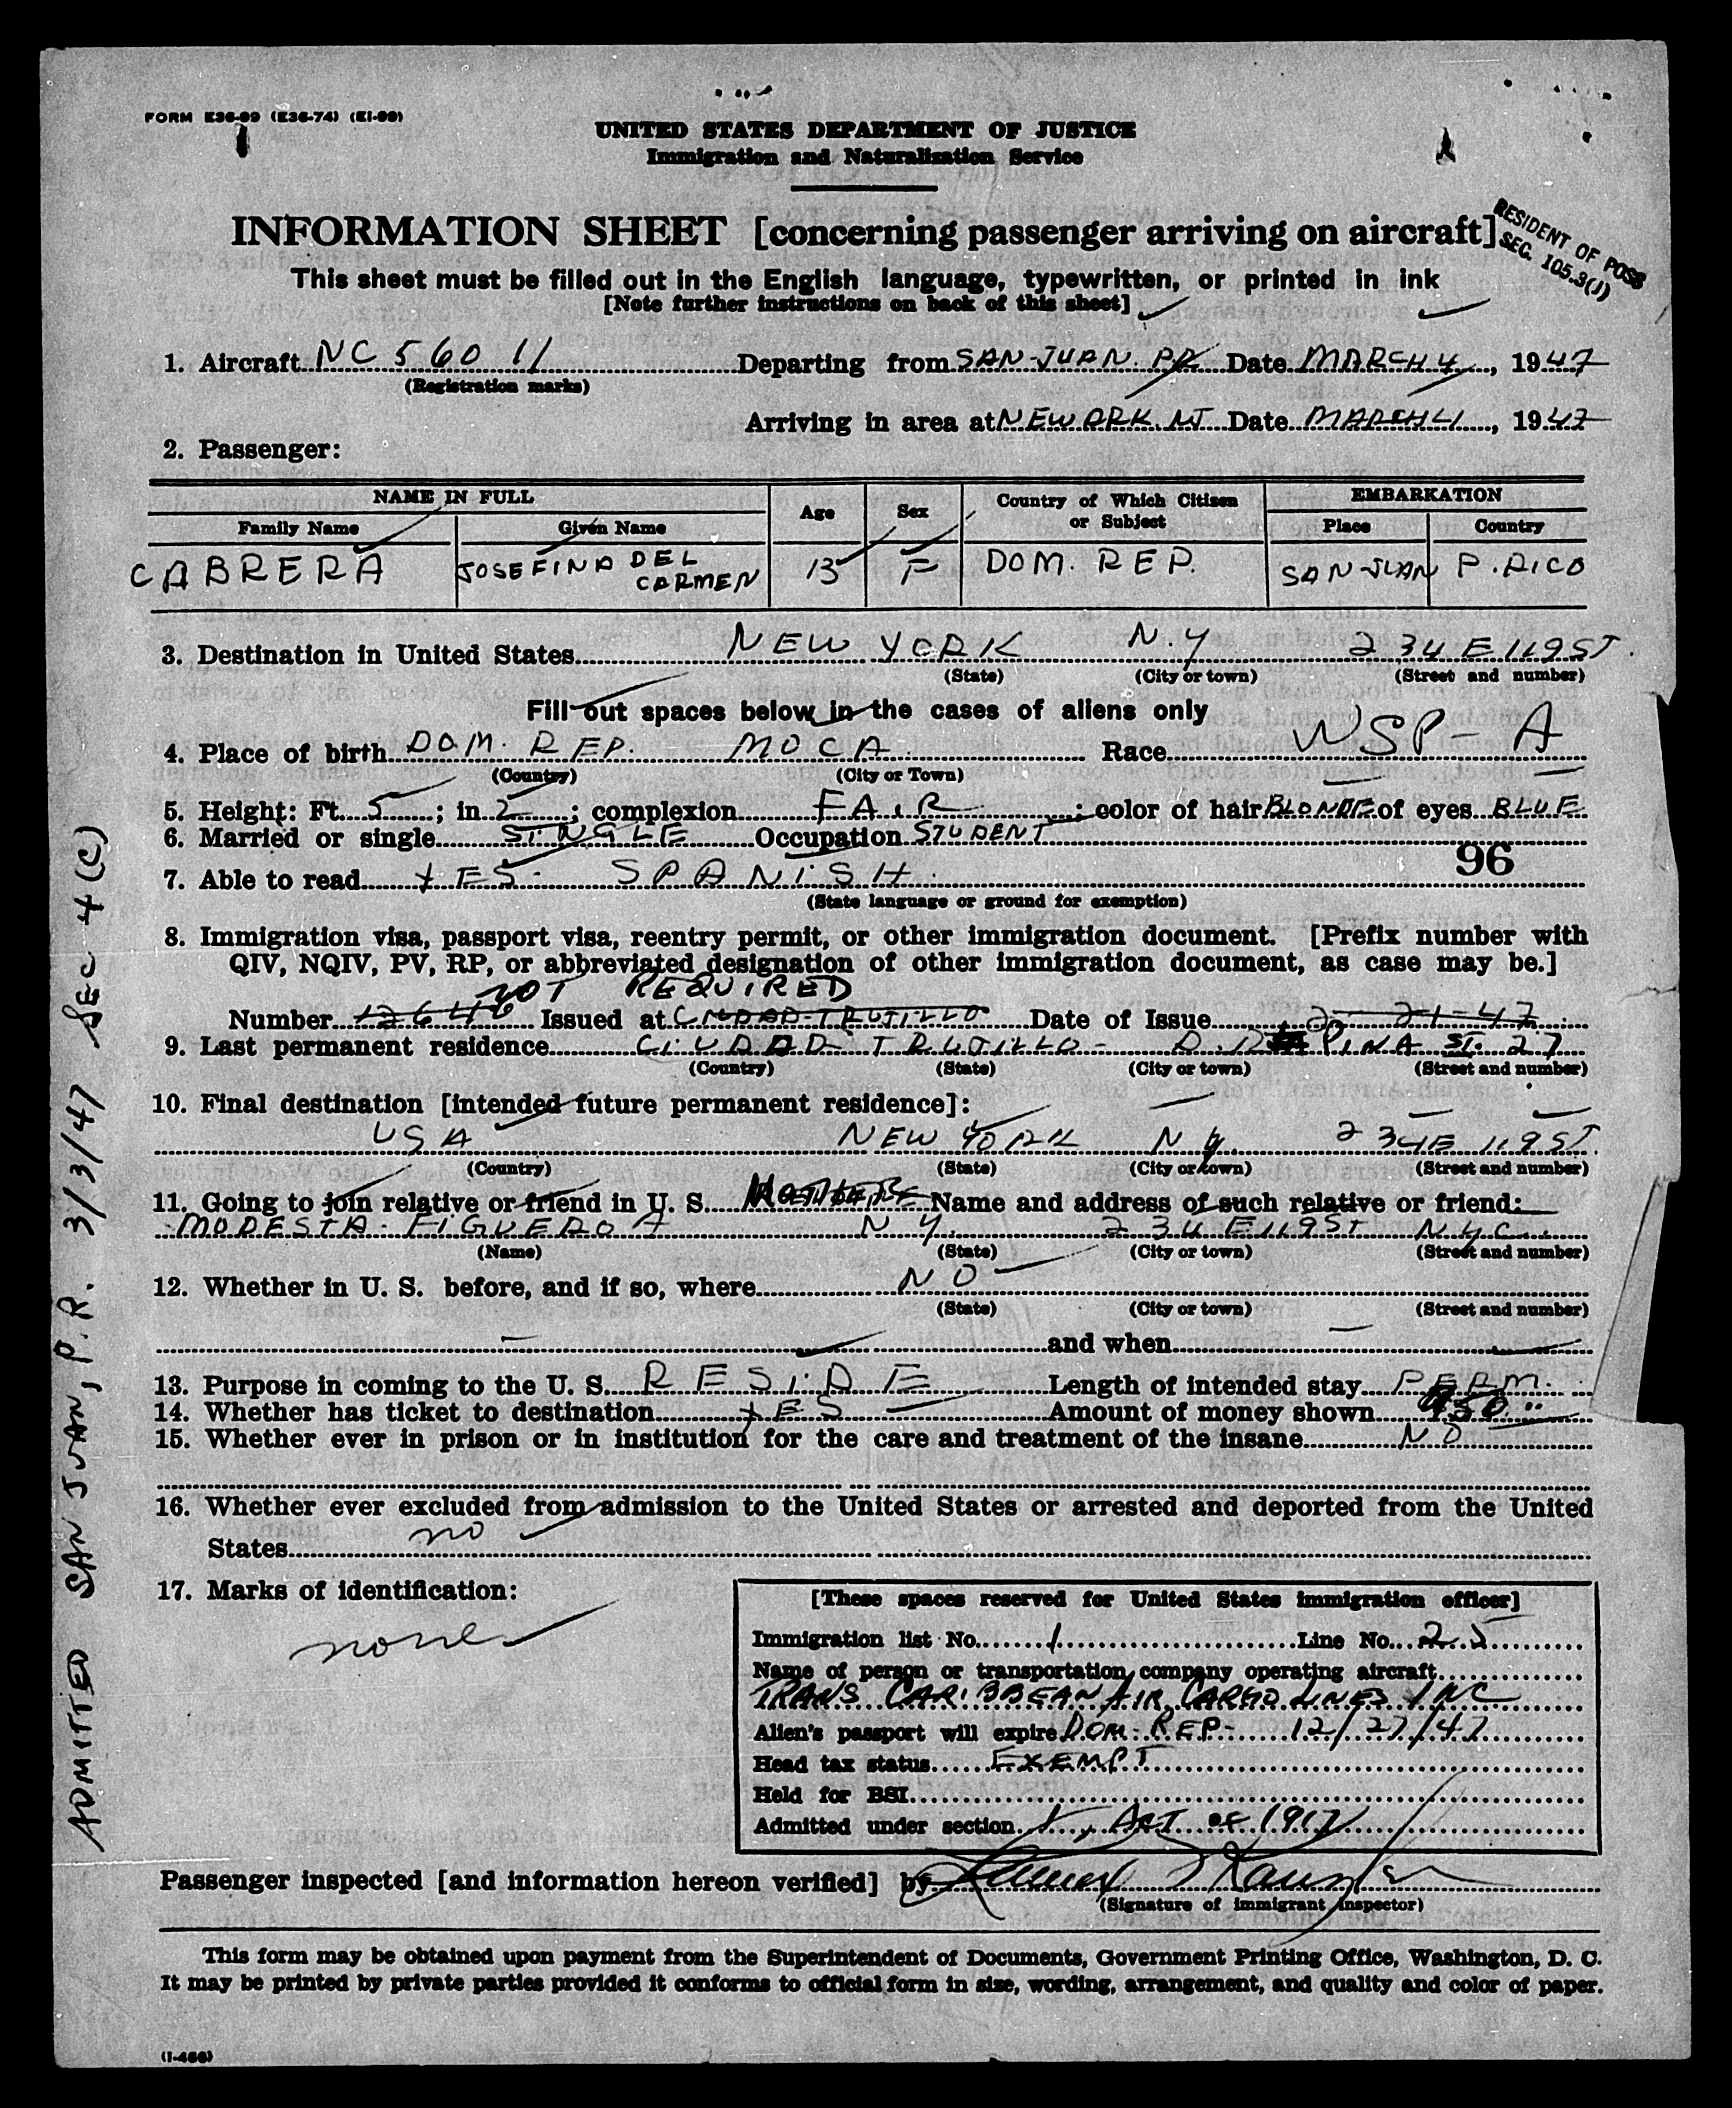 FORM E36-99 (E36-74) (EI-99)
UNITED STATES DEPARTMENT OF JUSTICE
Immigration and Naturalization Service
INFORMATION SHEET [concerning passenger arriving on aircraft]
RESIDENT OF POSS
SEC. 105.3(J)
This sheet must be filled out in the English language, typewritten, or printed in ink
[Note further instructions on back of this sheet]
1. Aircraft NC 56011 Departing from SAN-JUAN. PR Date MARCH 4, 1947
(Registration marks)
Arriving in area at NEWARK. NJ Date MARCH 4, 1947
2. Passenger:
NAME IN FULL Age Sex Country of Which Citizen or Subject EMBARKATION
Family Name Given Name Place Country
CABRERA JOSEFINA DEL CARMEN 13 F DOM. REP. SAN-JUAN P. RICO
3. Destination in United States NEW YORK N.Y 234 E 119 ST.
(State) (City or town) (Street and number)
Fill out spaces below in the cases of aliens only
4. Place of birth DOM. REP. MOCA Race WSP-A
(Country) (City or Town)
5. Height: Ft. 5; in 2; complexion FAIR; color of hair BLONDE of eyes BLUE
6. Married or single SINGLE Occupation STUDENT
96
7. Able to read YES. SPANISH.
(State language or ground for exemption)
8. Immigration visa, passport visa, reentry permit, or other immigration document. [Prefix number with
QIV, NQIV, PV, RP, or abbreviated designation of other immigration document, as case may be.]
NOT REQUIRED
Number 12646 Issued at CIUDAD-TRUJILLO Date of Issue 2-21-47
9. Last permanent residence CIUDAD TRUJILLO- D.R PINA ST. 27
(Country) (State) (City or town) (Street and number)
10. Final destination [intended future permanent residence]:
USA NEW YORK NY. 234 E 119 ST.
(Country) (State) (City or town) (Street and number)
11. Going to join relative or friend in U. S. MOTHER Name and address of such relative or friend:
MODESTA. FIGUEROA N.Y. 234 E 119 ST NYC.
(Name) (State) (City or town) (Street and number)
12. Whether in U. S. before, and if so, where NO
(State) (City or town) (Street and number)
- and when -
13. Purpose in coming to the U. S. RESIDE Length of intended stay PERM.
14. Whether has ticket to destination YES Amount of money shown
15. Whether ever in prison or in institution for the care and treatment of the insane NO
16. Whether ever excluded from admission to the United States or arrested and deported from the United
States no
17. Marks of identification:
none
[These spaces reserved for United States immigration officer]
Immigration list No. 1 Line No. 25
Name of person or transportation company operating aircraft
TRANS CARIBBEAN AIR CARGO LINES INC
Alien's passport will expire DOM. REP- 12/27/47
Head tax status EXEMPT
Held for BSI
Admitted under section 1, ACT of 1917
Passenger inspected [and information hereon verified] by
(Signature of immigrant inspector)
This form may be obtained upon payment from the Superintendent of Documents, Government Printing Office, Washington, D. C.
It may be printed by private parties provided it conforms to official form in size, wording, arrangement, and quality and color of paper.
(I-466)
ADMITTED SAN JUAN, P.R. 3/3/47 Sec 4(C)